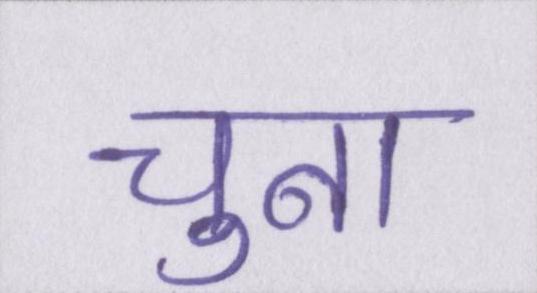 चुना